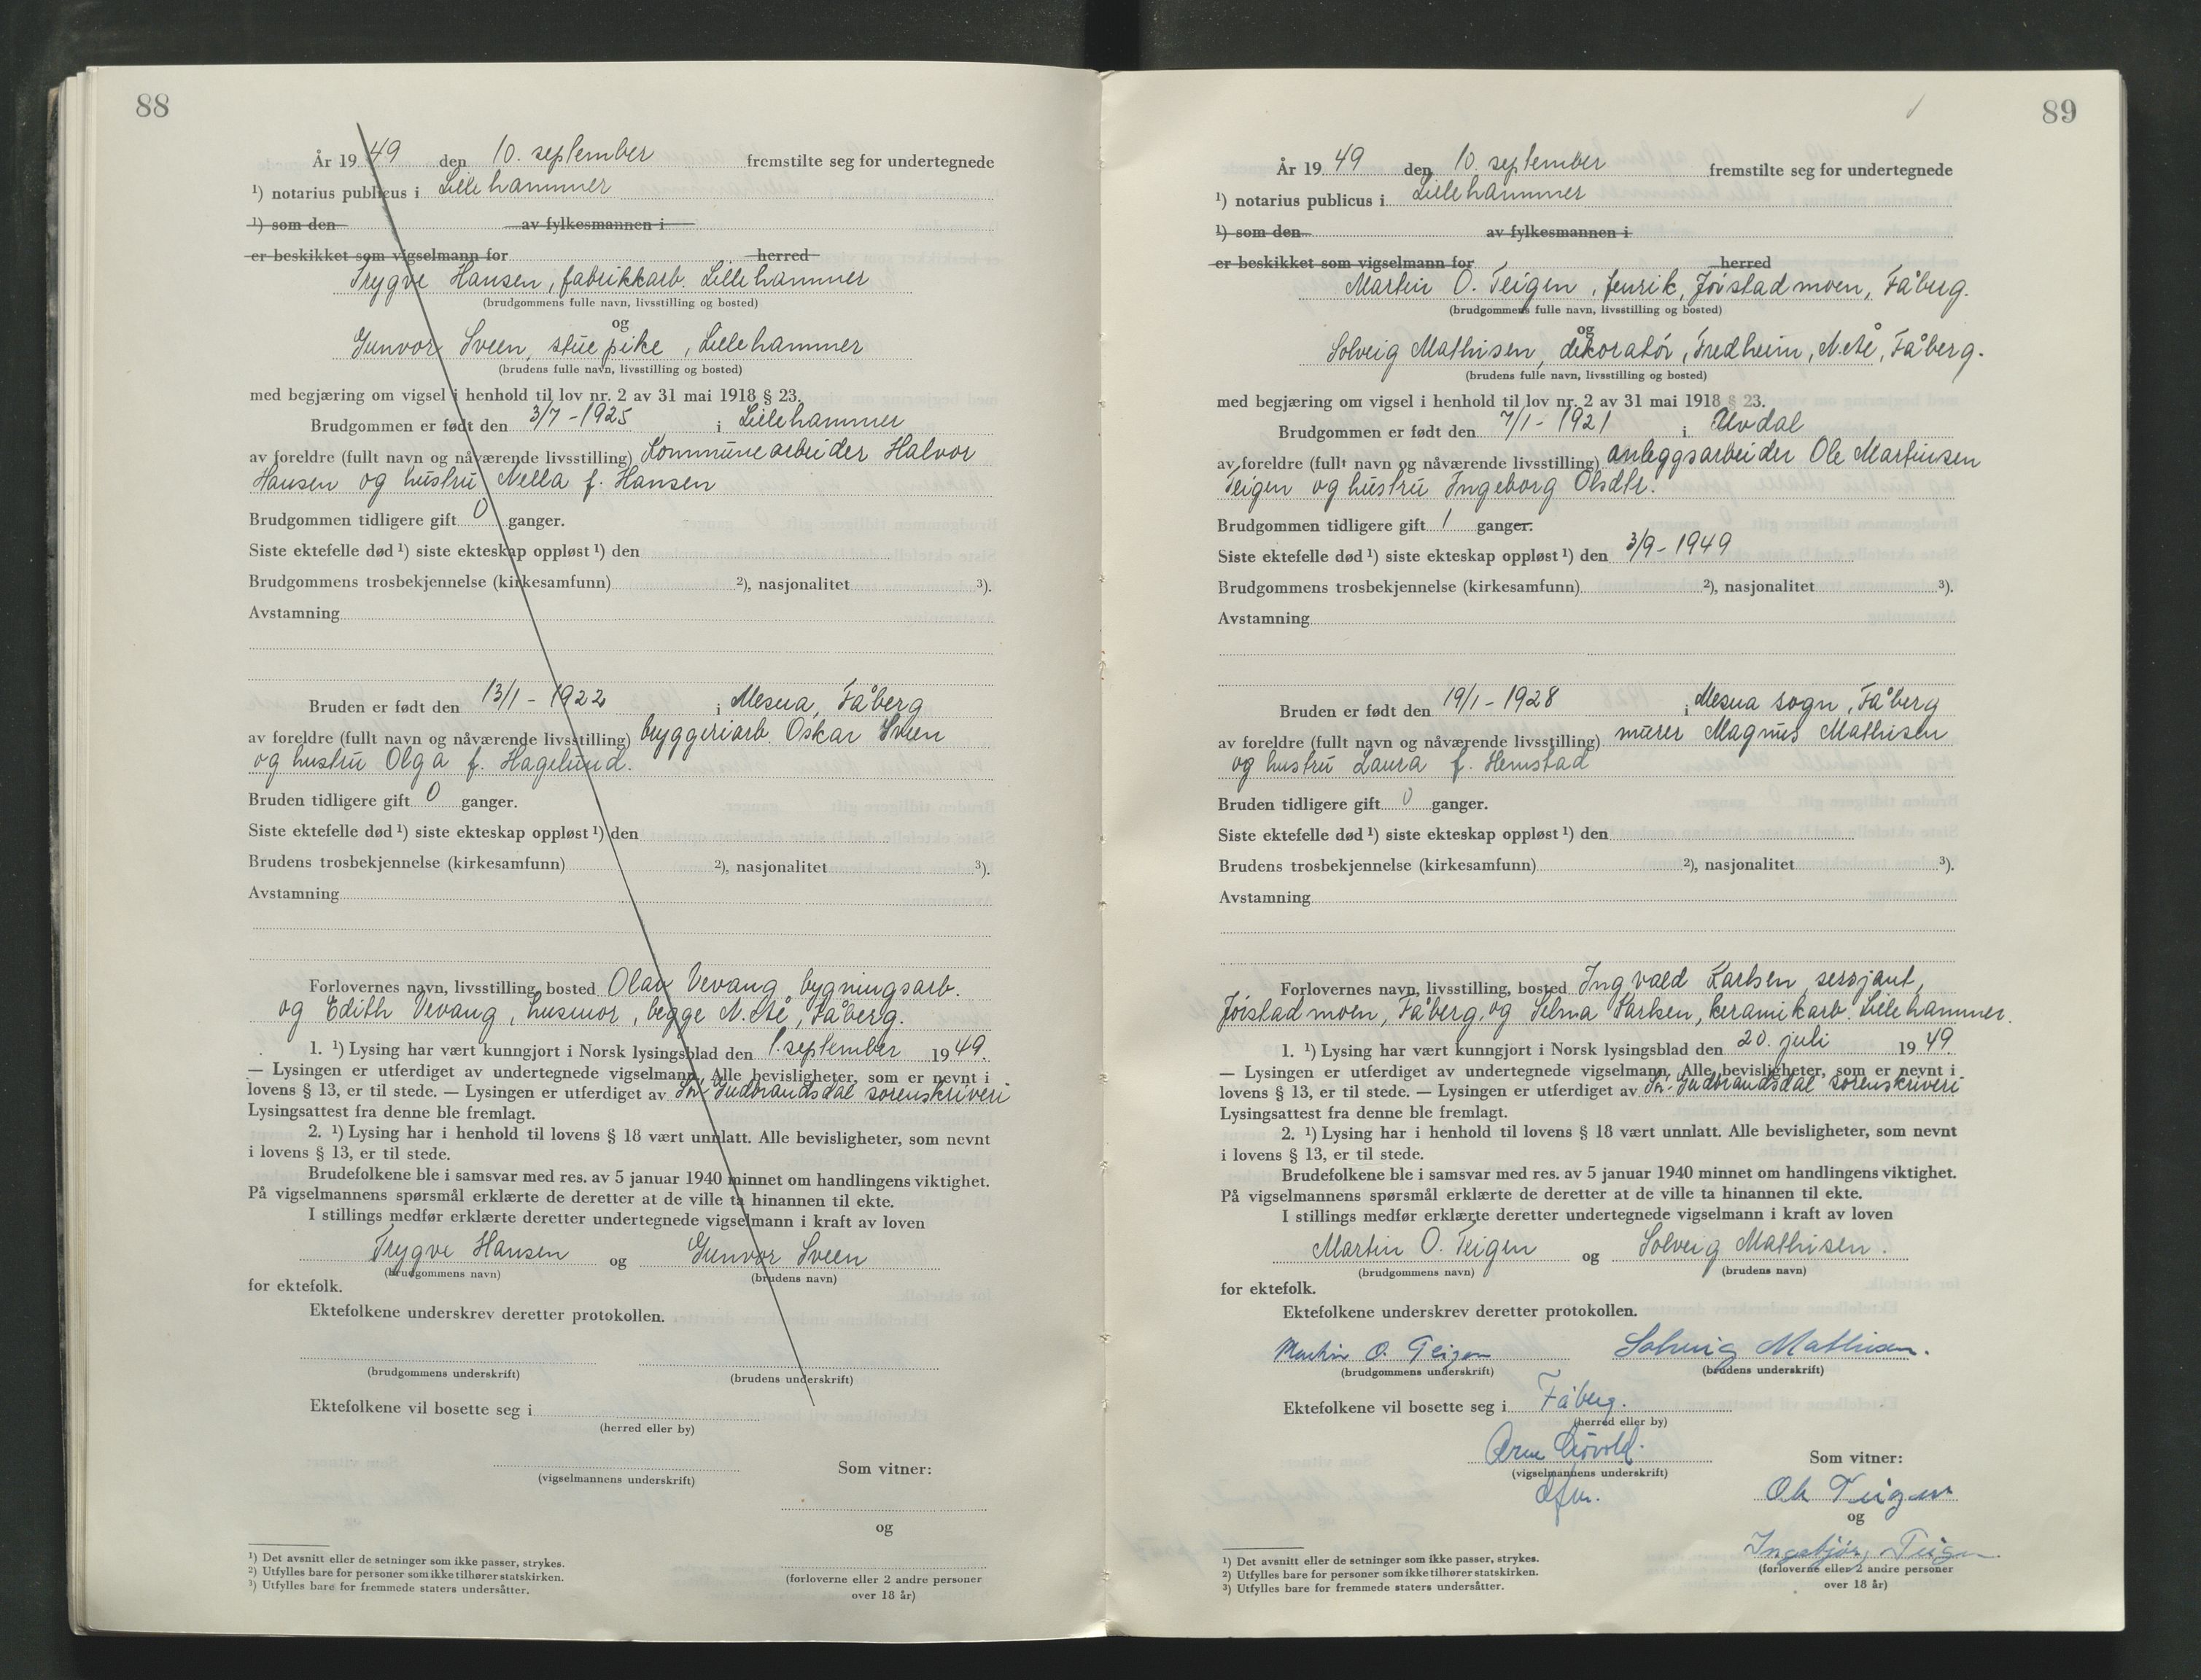 88
År 1949 den 10. september fremstilte seg for undertegnede
¹) notarius publicus i Lillehammer
¹) som den av fylkesmannen i
er beskikket som vigselmann for herred
Trygve Hansen, fabrikkarb. Lillehammer
(brudgommens fulle navn, livsstilling og bosted)
og
Gunvor Sveen, stuepike, Lillehammer
(brudens fulle navn, livsstilling og bosted)
med begjæring om vigsel i henhold til lov nr. 2 av 31 mai 1918 § 23.
Brudgommen er født den 3/7 - 1925 i Lillehammer
av foreldre (fullt navn og nåværende livsstilling) Kommunearbeider Halvor
Hansen og hustru Nella f. Hansen
Brudgommen tidligere gift 0 ganger.
Siste ektefelle død ¹) siste ekteskap oppløst ¹) den
Brudgommens trosbekjennelse (kirkesamfunn) ²), nasjonalitet ³).
Avstamning
Bruden er født den 13/1 - 1922 i Mesna, Fåberg
av foreldre (fullt navn og nåværende livsstilling) bryggeriarb. Oskar Sveen
og hustru Olga f. Hagelund.
Bruden tidligere gift 0 ganger.
Siste ektefelle død ¹) siste ekteskap oppløst ¹) den
Brudens trosbekjennelse (kirkesamfunn) ²), nasjonalitet ³).
Avstamning
Forlovernes navn, livsstilling, bosted Olav Vevang, bygningsarb.
og Edith Vevang, husmor, begge N. Ål, Fåberg.
1. ¹) Lysing har vært kunngjort i Norsk lysingsblad den 1. september 1949.
— Lysingen er utferdiget av undertegnede vigselmann. Alle bevisligheter, som er nevnt i
lovens § 13, er til stede. — Lysingen er utferdiget av Sør-Gudbrandsdal sorenskriveri
Lysingsattest fra denne ble fremlagt.
2. ¹) Lysing har i henhold til lovens § 18 vært unnlatt. Alle bevisligheter, som nevnt
i lovens § 13, er til stede.
Brudefolkene ble i samsvar med res. av 5 januar 1940 minnet om handlingens viktighet.
På vigselmannens spørsmål erklærte de deretter at de ville ta hinannen til ekte.
I stillings medfør erklærte deretter undertegnede vigselmann i kraft av loven
Trygve Hansen og Gunvor Sveen
(brudgommens navn) (brudens navn)
for ektefolk.
Ektefolkene underskrev deretter protokollen.
(brudgommens underskrift) (brudens underskrift)
Ektefolkene vil bosette seg i
(herred eller by)
(vigselmannens underskrift)
Som vitner:
og
(forloverne eller 2 andre personer
over 18 år)
¹) Det avsnitt eller de setninger som ikke passer, strykes.
²) Utfylles bare for personer som ikke tilhører statskirken.
³) Utfylles bare for fremmede staters undersåtter.
89
År 1949 den 10. september fremstilte seg for undertegnede
¹) notarius publicus i Lillehammer
¹) som den av fylkesmannen i
er beskikket som vigselmann for herred
Martin O. Teigen, fenrik, Jørstadmoen, Fåberg.
(brudgommens fulle navn, livsstilling og bosted)
og
Solveig Mathisen, dekoratør, Fredheim, N. Ål, Fåberg.
(brudens fulle navn, livsstilling og bosted)
med begjæring om vigsel i henhold til lov nr. 2 av 31 mai 1918 § 23.
Brudgommen er født den 7/1 - 1921 i Uvdal
av foreldre (fullt navn og nåværende livsstilling) anleggsarbeider Ole Martinsen
Teigen og hustru Ingeborg Olsdtr.
Brudgommen tidligere gift 1 ganger.
Siste ektefelle død ¹) siste ekteskap oppløst ¹) den 3/9 - 1949
Brudgommens trosbekjennelse (kirkesamfunn) ²), nasjonalitet ³).
Avstamning
Bruden er født den 19/1 - 1928 i Mesna sogn, Fåberg
av foreldre (fullt navn og nåværende livsstilling) murer Magnus Mathisen
og hustru Laura f. Hemstad
Bruden tidligere gift 0 ganger.
Siste ektefelle død ¹) siste ekteskap oppløst ¹) den
Brudens trosbekjennelse (kirkesamfunn) ²), nasjonalitet ³).
Avstamning
Forlovernes navn, livsstilling, bosted Ingvald Karlsen, sersjant,
Jørstadmoen, Fåberg, og Selma Karlsen, keramikarb. Lillehammer.
1. ¹) Lysing har vært kunngjort i Norsk lysingsblad den 20. juli 1949
— Lysingen er utferdiget av undertegnede vigselmann. Alle bevisligheter, som er nevnt i
lovens § 13, er til stede. — Lysingen er utferdiget av Sør-Gudbrandsdal sorenskriveri
Lysingsattest fra denne ble fremlagt.
2. ¹) Lysing har i henhold til lovens § 18 vært unnlatt. Alle bevisligheter, som nevnt
i lovens § 13, er til stede.
Brudefolkene ble i samsvar med res. av 5 januar 1940 minnet om handlingens viktighet.
På vigselmannens spørsmål erklærte de deretter at de ville ta hinannen til ekte.
I stillings medfør erklærte deretter undertegnede vigselmann i kraft av loven
Martin O. Teigen og Solveig Mathisen.
(brudgommens navn) (brudens navn)
for ektefolk.
Ektefolkene underskrev deretter protokollen.
Martin O. Teigen Solveig Mathisen.
(brudgommens underskrift) (brudens underskrift)
Ektefolkene vil bosette seg i Fåberg.
(herred eller by)
Arne
(vigselmannens underskrift)
Som vitner:
Ole Teigen
og
Ingebjør Teigen
(forloverne eller 2 andre personer
over 18 år)
¹) Det avsnitt eller de setninger som ikke passer, strykes.
²) Utfylles bare for personer som ikke tilhører statskirken.
³) Utfylles bare for fremmede staters undersåtter.